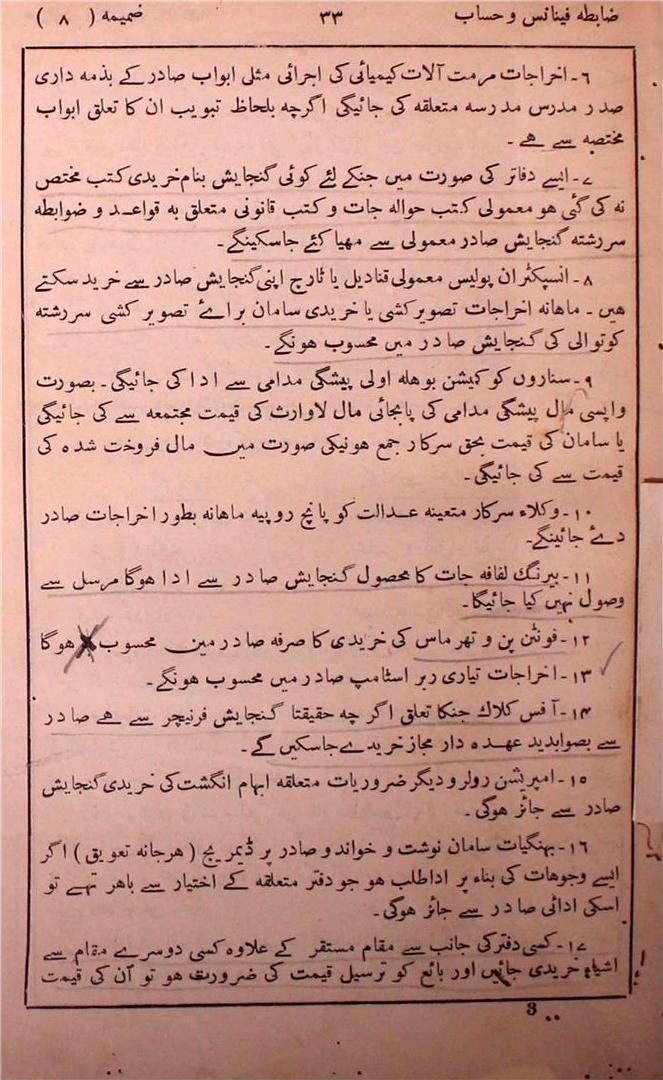 ضابطه فینانس و حساب
۳۳
ضمیمه ( ۸ )
۶ - اخراجات مرمت آلات کیمیائی کی اجرائی مثلی ابواب صادر کے بذمه داری
صدر مدرس مدرسه متعلقه کی جائیگی اگرچه بلحاظ تبویب ان کا تعلق ابواب
مختصه سے هے ۔
۷ - ایسے دفاتر کی صورت میں جنکے لئے کوئی گنجایش بنام خریدی کتب مختص
نه کی گئی هو معمولی کتب حواله جات و کتب قانونی متعلق به قواعد و ضوابطه
سررشته گنجایش صادر معمولی سے مهیا کئے جاسکینگے۔
۸ - انسپکٹران پولیس معمولی قنادیل یا ٹارچ اپنی گنجایش صادر سے خرید سکتے
هیں ۔ ماهانه اخراجات تصویر کشی یا خریدی سامان براۓ تصویر کشی سررشته
کوتوالی کی گنجایش صادر میں محسوب هونگے ۔
۹ - سناروں کو کمیشن بوهله اولی پیشگی مدامی سے ادا کی جائیگی ۔ بصورت
واپسی مال پیشگی مدامی کی پابجائی مال لاوارث کی قیمت مجتمعه سے کی جائیگی
یا سامان کی قیمت بحق سرکار جمع هونیکی صورت میں مال فروخت شده کی
قیمت سے کی جائیگی۔
۱۰ - وکلاء سرکار متعینه عدالت کو پانچ روپیه ماهانه بطور اخراجات صادر
دۓ جائینگے۔
۱۱ - بیرنگ لفافه جات کا محصول گنجایش صادر سے ادا هوگا مرسل سے
وصول نہیں کیا جائیگا۔
۱۲ - فونٹن پن و تهرماس کی خریدی کا صرفه صادر میں محسوب هوگا
۱۳ - اخراجات تیاری ربر اسٹامپ صادر میں محسوب هونگے ۔
۱۴ - آفس کلاك جنکا تعلق اگر چه حقیقتا گنجایش فرنیچر سے هے صادر
سے بصوابدید عهده دار مجاز خریدے جاسکیں گے ۔
۱۵ - امپریشن رولر و دیگر ضروریات متعلقه ابهام انگشت کی خریدی گنجایش
صادر سے جائز هوگی ۔
۱۶ - بهنگیات سامان نوشت و خواند و صادر پر ڈیمریج ( هرجانه تعویق ) اگر
ایسے وجوهات کی بناء پر ادا طلب هو جو دفتر متعلقه کے اختیار سے باهر تهے تو
اسکی ادائی صادر سے جائز هوگی ۔
۱۷ - کسی دفتر کی جانب سے مقام مستقر کے علاوه کسی دوسرے مقام سے
اشیاء خریدی جائیں اور بائع کو ترسیل قیمت کی ضرورت هو تو آن کی قیمت
3